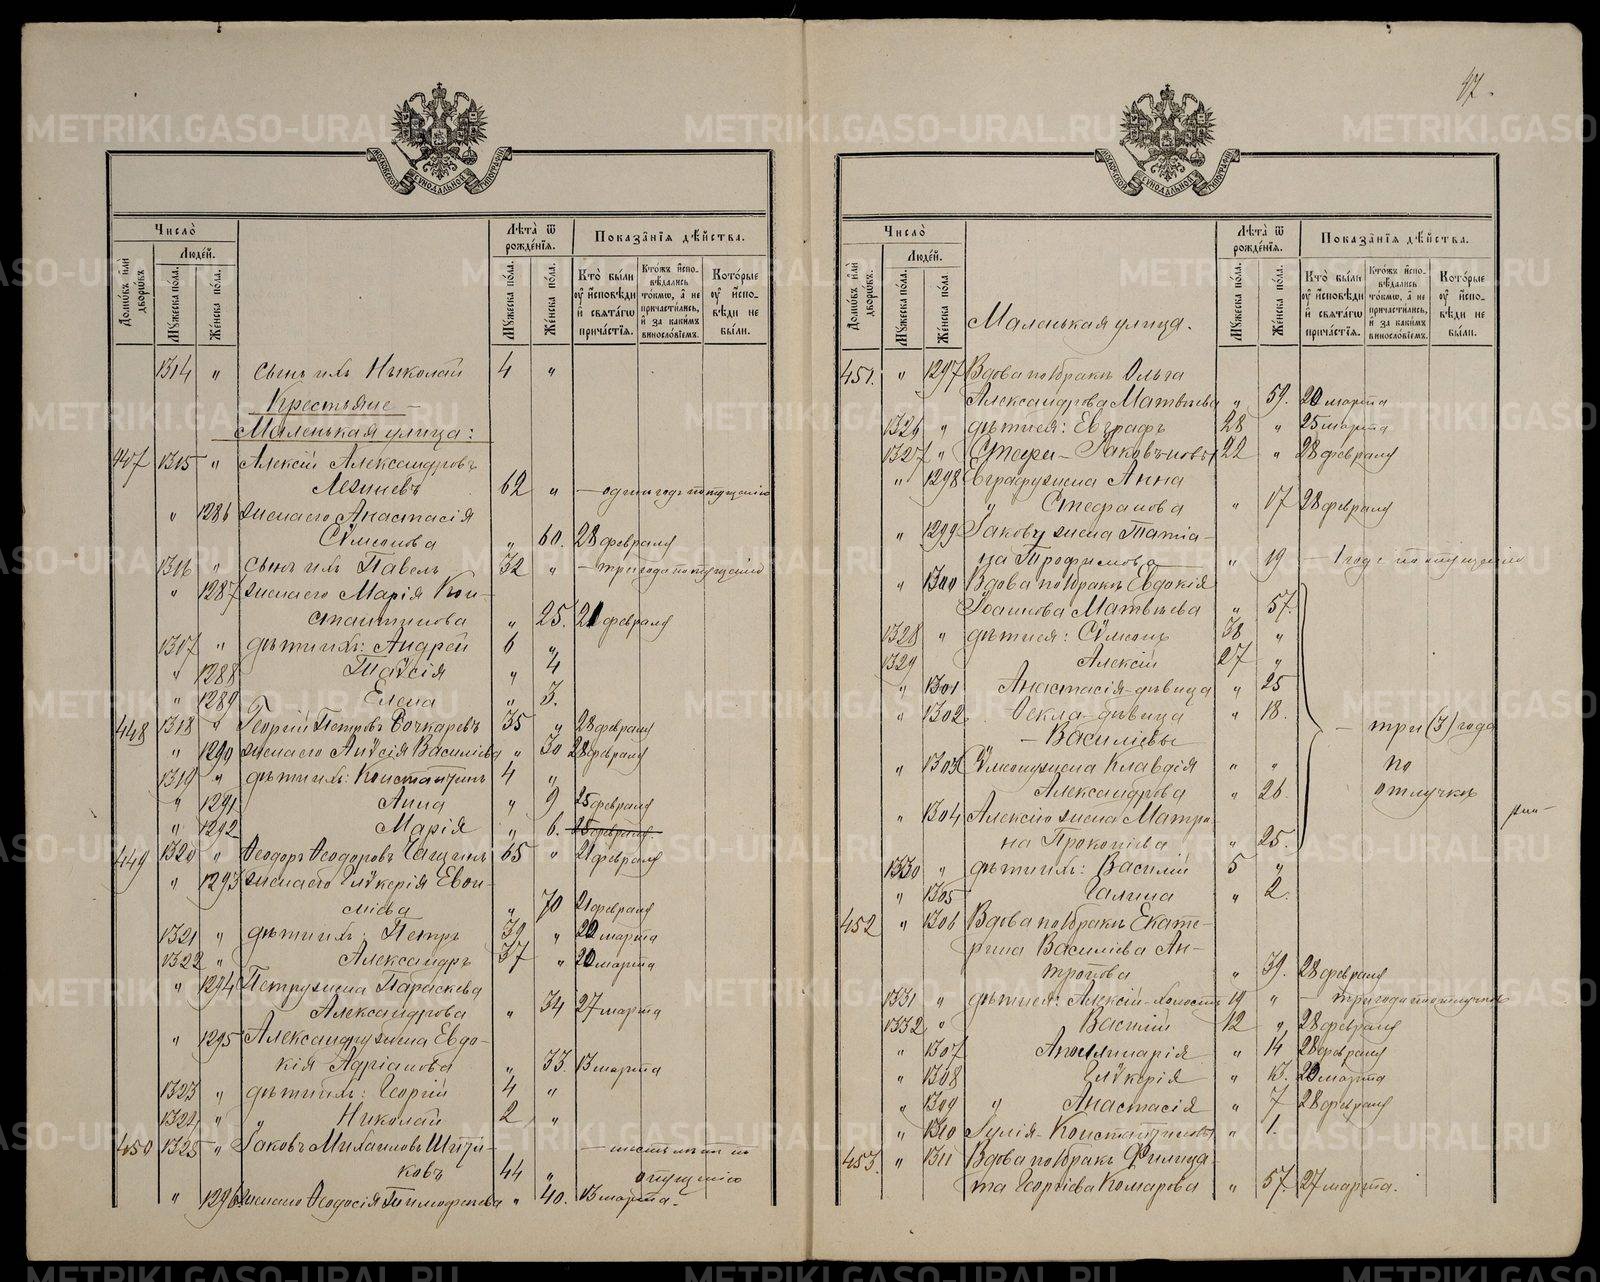 47.
Число̀
Домѡ́въ и҆лѝ дворѡ́въ.
Люде́й.
Мꙋ́жеска по́ла.
Же́нска по́ла.
Лѣ́та ѿ рожде́нїѧ.
Мꙋ́жеска по́ла.
Же́нска по́ла.
Показа̑нїѧ дѣ́йства.
Кто̀ бы́ли ᲂу҆ и҆сповѣ́ди и҆ свѧта́гѡ причастїѧ.
Кто́жъ и҆спо-вѣ́дались то́кмѡ, а҆ не причасти́лись, и҆ за каки́мъ винослові́емъ.
Кото́рые ᲂу҆ и҆спо-вѣ́ди не бы́ли.
1314 „ сынъ ихъ Николай 4 „
Крестьяне –
Маленькая улица:
447 1315 „ Алексій Александровъ
Логиневъ 62 „ — одинъ годъ по опущенію
„ 1286 жена его Анастасія
Сѵмеонова „ 60. 28 февраля
1316 „ сынъ ихъ Павелъ 32 „ — три года по опущенію
„ 1287 жена его Марія Кон-
стантинова „ 25. 21 февраля
1317 „ дѣти ихъ: Андрей 6 „
„ 1288 Таисія „ 4
„ 1289 Елена „ 3.
448 1318 „ Георгій Петровъ Бочкаревъ 35 „ 28 февраля
„ 1290 жена его Анисія Василіева „ 30 28 февраля
1319 „ дѣти ихъ: Константинъ 4 „
„ 1291 Анна „ 9 25 февраля
„ 1292 Марія „ 6. 25 февраля
449 1320 „ Ѳеодоръ Ѳеодоровъ Гащинъ 65 „ 21 февраля
„ 1293 жена его Глѵкерія Евѳи-
міева „ 70 21 февраля
1321 „ дѣти ихъ: Петръ 39 „ 20 марта
1322 „ Александръ 37 „ 20 марта
„ 1294 Петру жена Параскева
Александрова „ 34 27 марта
„ 1295 Александру жена Евдо-
кія Адріанова „ 33. 13 марта
1323 „ дѣти ихъ: Георгій 4 „
1324 „ „ Николай 2 „
450 1325 „ Іаковъ Михаиловъ Шити- — шесть лѣтъ по
ковъ 44 „ опущенію
„ 1296 жена его Ѳеодосія Тимофеева „ 40. 13 марта.
Число̀
Домѡ́въ и҆лѝ дворѡ́въ.
Люде́й.
Мꙋ́жеска по́ла.
Же́нска по́ла
Лѣ́та ѿ рожде́нїѧ.
Мꙋ́жеска по́ла.
Же́нска по́ла.
Показа̑нїѧ дѣ́йства.
Кто̀ бы́ли ᲂу҆ и҆сповѣ́ди и҆ свѧта́гѡ причастїѧ.
Кто́жъ и҆спо-вѣ́дались то́кмѡ, а҆ не причасти́лись, и҆ за каки́мъ винослові́емъ.
Кото́рые ᲂу҆ и҆спо-вѣ́ди не бы́ли.
Маленькая улица.
451. „ 1297 Вдова по 1 бракѣ Ольга
Александрова Матвѣева „ 59. 20 марта
1326 „ дѣти ея: Евграфъ 28 „ 25 марта
1327 „ Стефан – Іаковъ 22 „ 28 февраля
„ 1298 Евграфу жена Анна
„ Стефанова „ 17 28 февраля
„ 1299 Іакову жена Татіа-
на Трофимова „ 19 — 1 годъ по опущенію
„ 1300 Вдова по 1 бракѣ Евдокія
Іоаннова Матвѣева „ 57.
1328 „ дѣти ея: Сѵмеонъ 38 „
1329 Алексій 27 „
„ 1301 Анастасія – дѣвица „ 25
„ 1302 Ѳекла – дѣвица „ 18.
– Василіевы
— три (3) года
по
отлучкѣ
„ 1303 Сѵмеону жена Клавдія
Александрова „ 26.
„ 1304 Алексію жена Матро-
на Прокопіева „ 25.
1330 „ дѣти ихъ: Василій 5 „
„ 1305 Галина „ 2.
452 „ 1306 Вдова по 1 бракѣ Екате-
рина Василіева Ан-
тропова „ 39. 28 февраля
1331 „ дѣти ея: Алексій – холостъ 19 „ — три года по отлучкѣ
1332 „ Василій 12 „ 28 февраля
„ 1307 Аполлинарія „ 14 28 февраля
„ 1308 Глѵкерія „ 13. 20 марта
„ 1309 „ Анастасія „ 7 28 февраля
„ 1310 Іулія – Константиновы „ 1.
453. „ 1311 Вдова по 1 бракѣ Филица-
та Георгіева Комарова „ 57. 27 марта.
METRIKI.GASO-URAL.RU